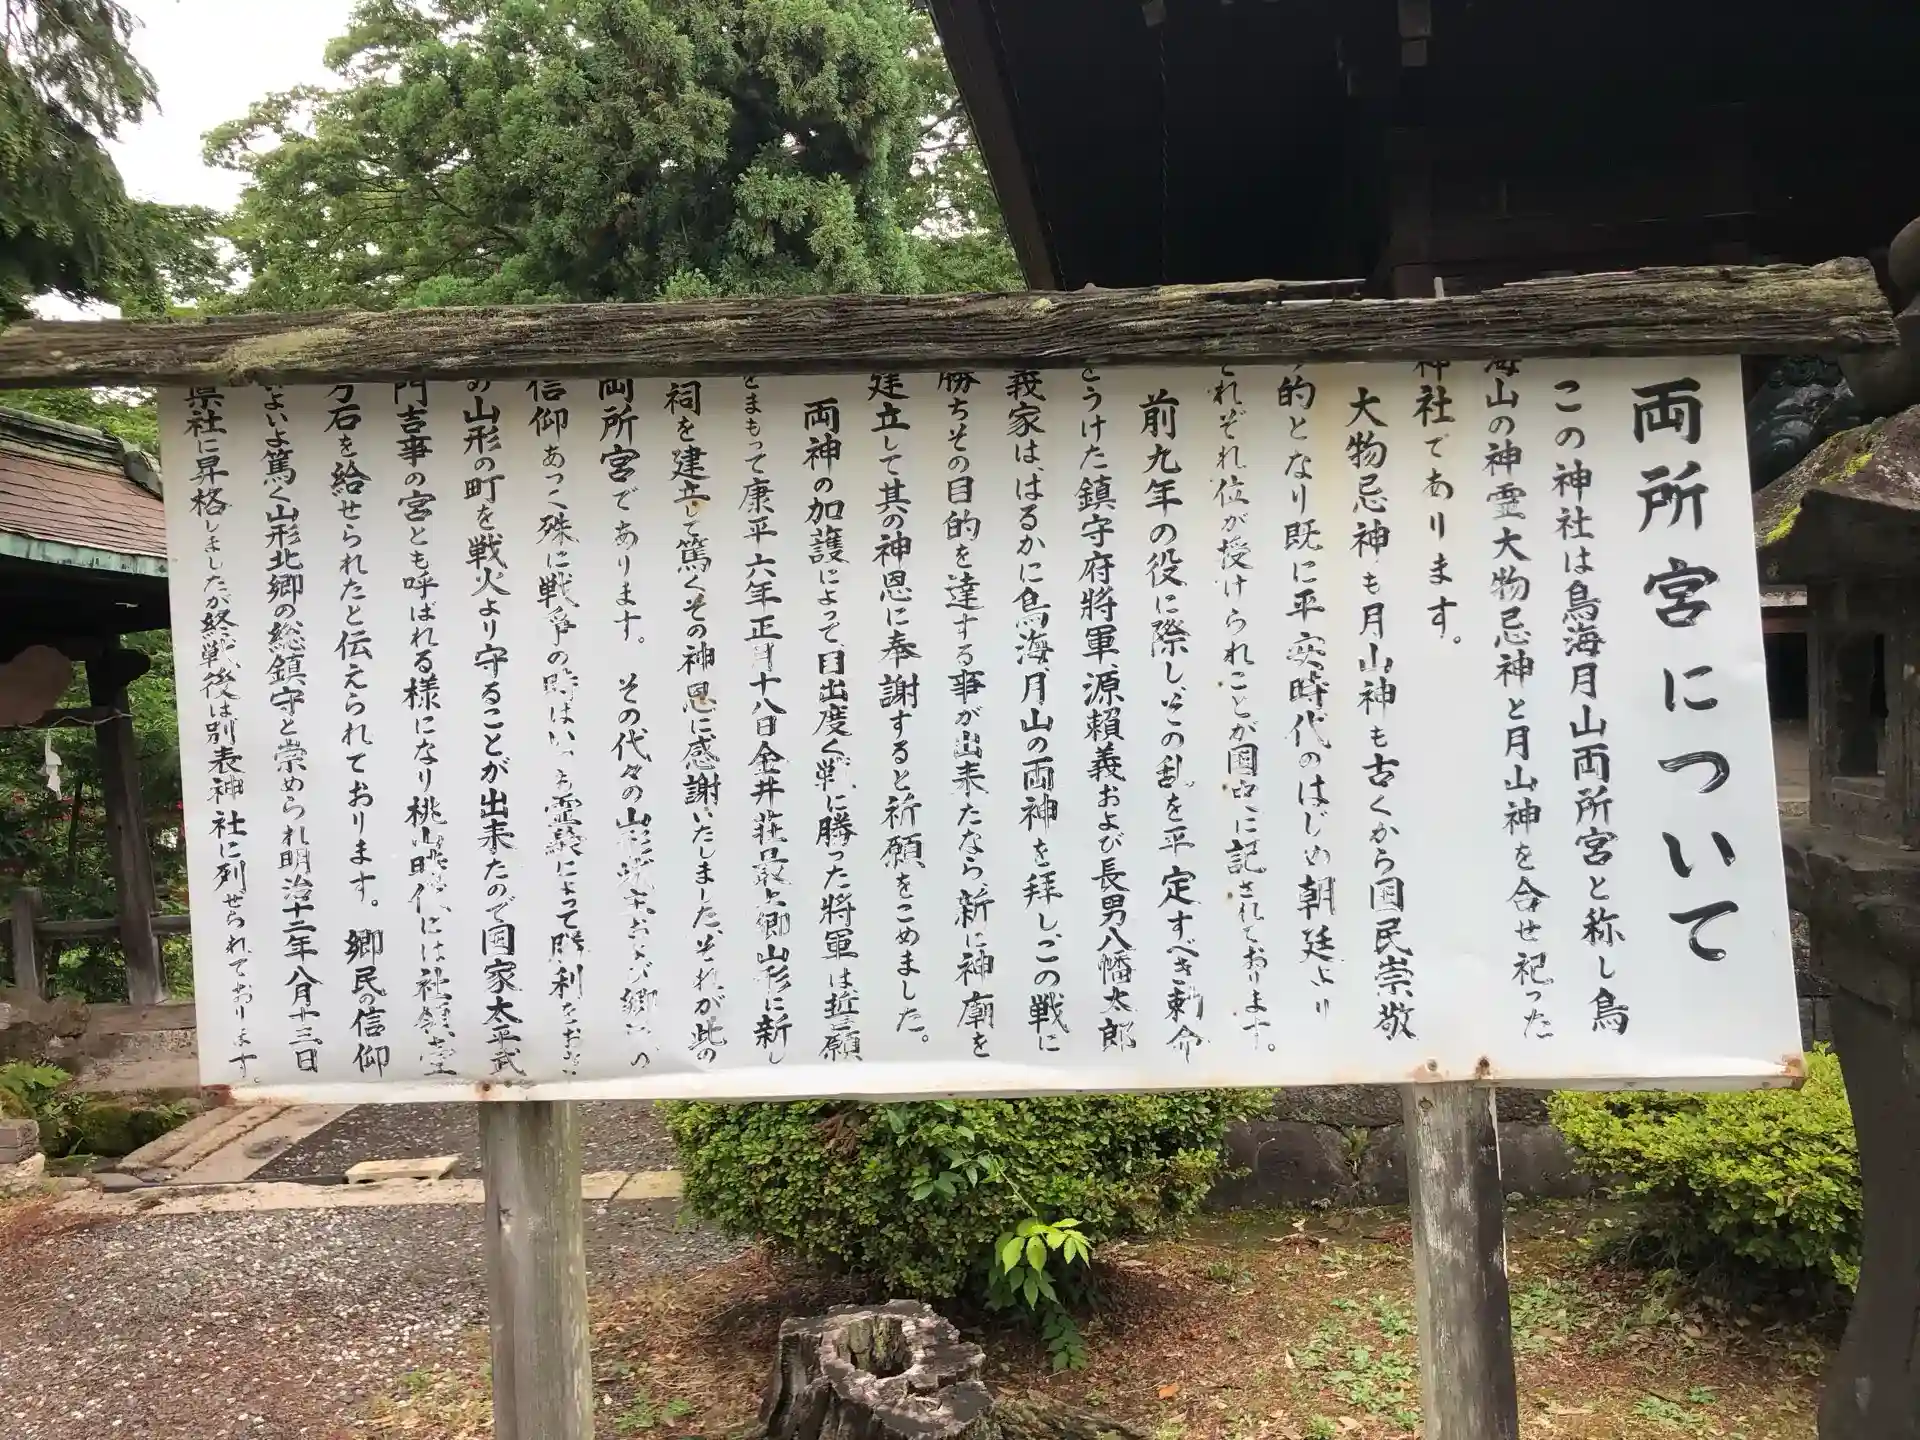 両所宮について
この神社は鳥海月山両所宮と称し鳥
海山の神霊大物忌神と月山神を合せ祀った
神社であります。
大物忌神も月山神も古くから国民崇敬
的となり既に平安時代のはじめ朝廷より
れぞれ位が授けられことが国史に記されております。
前九年の役に際しこの乱を平定すべき勅命
をうけた鎮守府將軍源賴義および長男八幡太郎
義家は、はるかに鳥海、月山の両神を拝し、この戦に
勝ちその目的を達する事が出来たなら、新に神廟を
建立して其の神恩に奉謝すると祈願をこめました。
両神の加護によって目出度く戦に勝った將軍は誓願
をまもって康平六年正月十八日金井荘最上郷山形に新し
祠を建立して篤くその神恩に感謝いたしました、それが此の
両所宮であります。その代々の山形城主および郷の
信仰あつく殊に戦争の時はいつも霊験によって勝利をおさ
の山形の町を戦火より守ることが出来たので国家太平武
門吉事の宮とも呼ばれる様になり桃山時代には社領壹
万石を給せられたと伝えられております。郷民の信仰
いよいよ篤く山形北郷の総鎮守と崇められ明治十二年八月十三日
県社に昇格しましたが終戦後は別表神社に列せられております。